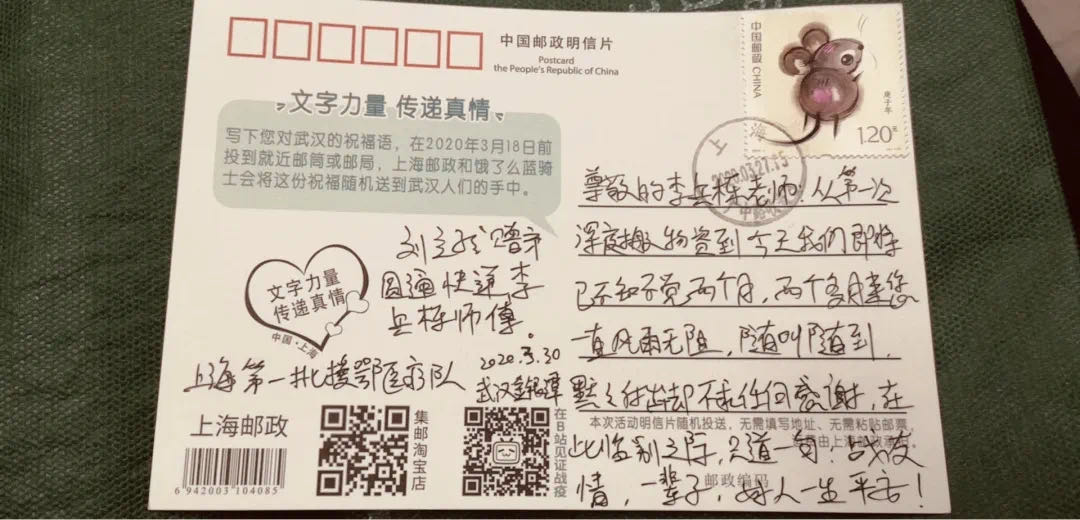 中国邮政明信片
Postcard
the People's Republic of China
中国邮政 CHINA
庚子年
1.20元
文字力量 传递真情
写下您对武汉的祝福语，在2020年3月18日前
投到就近邮筒或邮局，上海邮政和饿了么蓝骑
士会将这份祝福随机送到武汉人们的手中。
上海
2020.03.27.15
尊敬的李兵栋老师：从第一次
深夜搬物资到今天我们即将
已不知不觉两个月，两个多月来您
一直风雨无阻，随叫随到，
默默付出却不求任何感谢，在
此临别之际，只道一句：战友
情，一辈子，好人一生平安！
圆通快递李
兵栋师傅。
2020.3.30
武汉金银潭
上海第一批援鄂医疗队
文字力量
传递真情
中国·上海
上海邮政
6 942003 104085
集邮淘宝店
在B站见证战疫
本次活动明信片随机投送，无需填写地址、无需粘贴邮票，
邮政编码